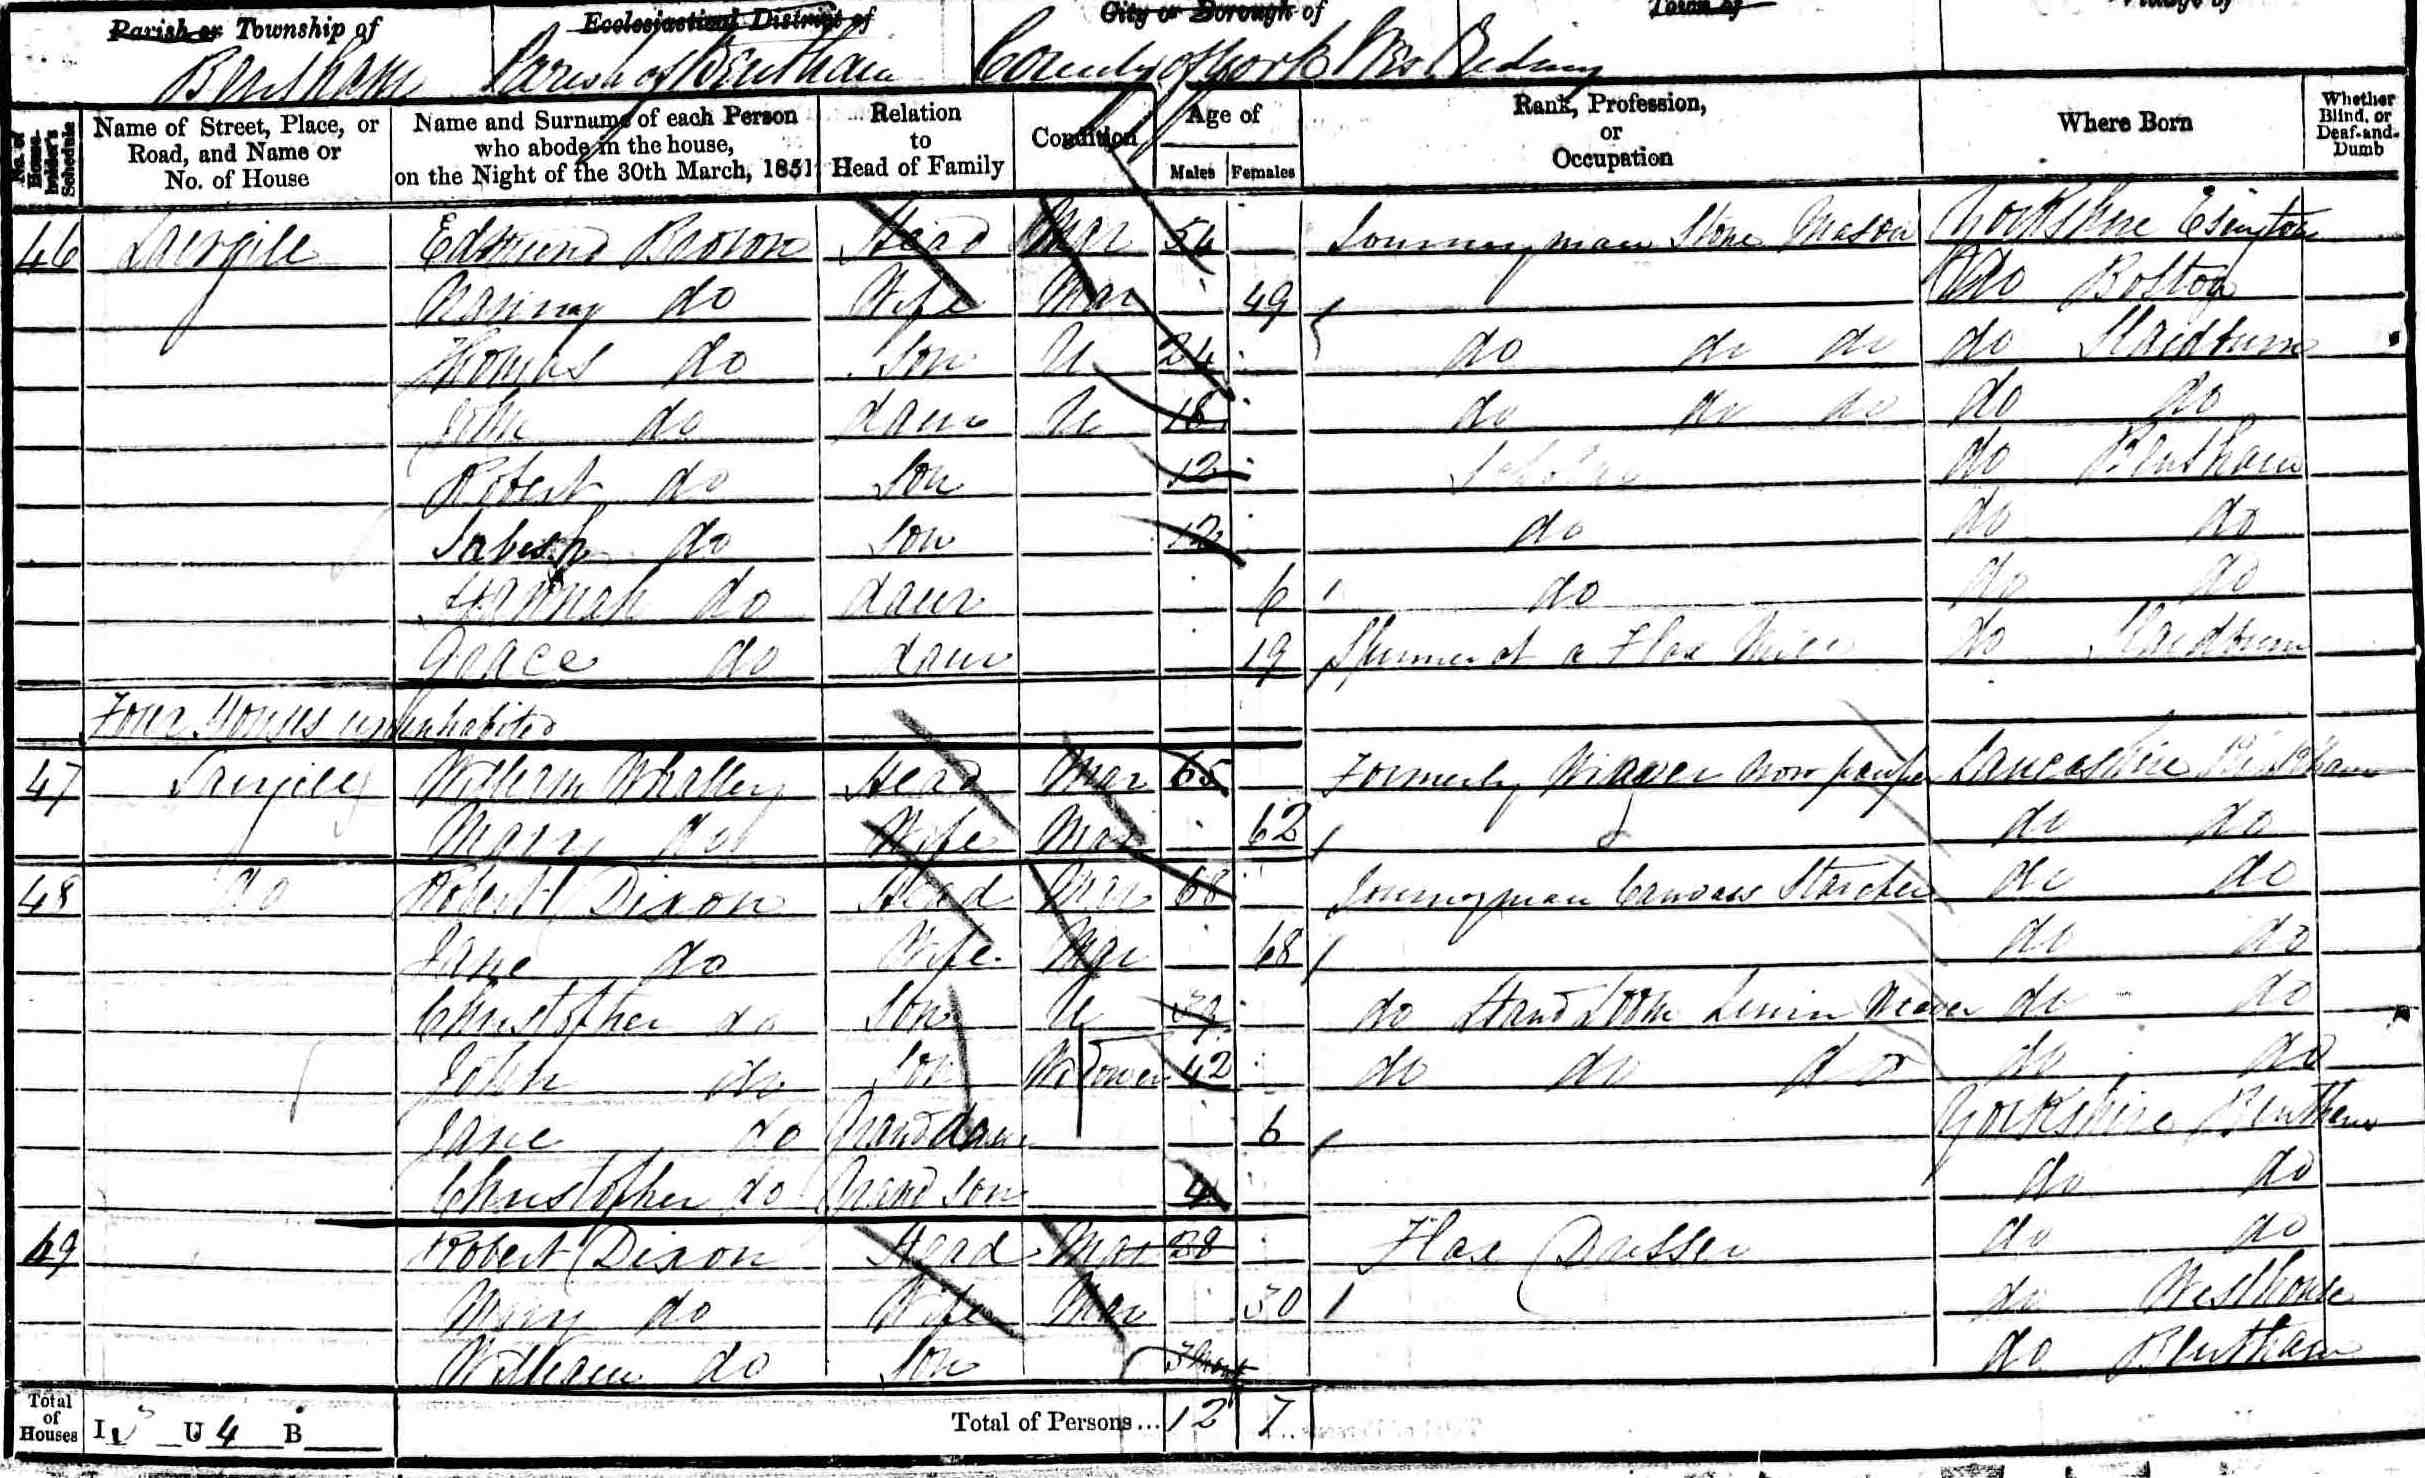 Parish or Township of
Ecclesiastical District of
City or Borough of
Town of
Village of
Bentham
Parish of Bentham
County of York West Riding
No. of House-holder's Schedule
Name of Street, Place, or Road, and Name or No. of House
Name and Surname of each Person who abode in the house, on the Night of the 30th March, 1851
Relation to Head of Family
Condition
Age of
Males Females
Rank, Profession, or Occupation
Where Born
Whether Blind, or Deaf-and-Dumb
46 Edmund Brown Head Mar 54 Journeyman Stone Mason Yorkshire Esington
Nanny do Wife Mar 49 do Bolton
Thomas do Son U 24 do do do do Slaidburn
John do daur U 18 do do do do do
Robert do Son 12 Scholar do Bentham
Jabesh do Son 12 do do do
Hannah do daur 6 do do do
Grace do daur 19 Spinner at a Flax Mill do Slaidburn
Four Houses uninhabited
47 William Whalley Head Mar 65 Formerly Weaver now pauper Lancashire
Mary do Wife Mar 62 do do
48 do Robert Dixon Head Mar 68 Journeyman Canvass Starcher do do
Jane do Wife Mar 68 do do
Christopher do Son U 39 do Hand Loom Linin Weaver do do
John do Son Widower 42 do do do do do
Jane do Grand daur 6 Yorkshire Bentham
Christopher do Grand Son 4 do do
49 Robert Dixon Head Mar 28 Flax Dresser do do
Mary do Wife Mar 30 do Westhouse
William do Son 3 mont do Bentham
Total of Houses I U 4 B Total of Persons... 12 7